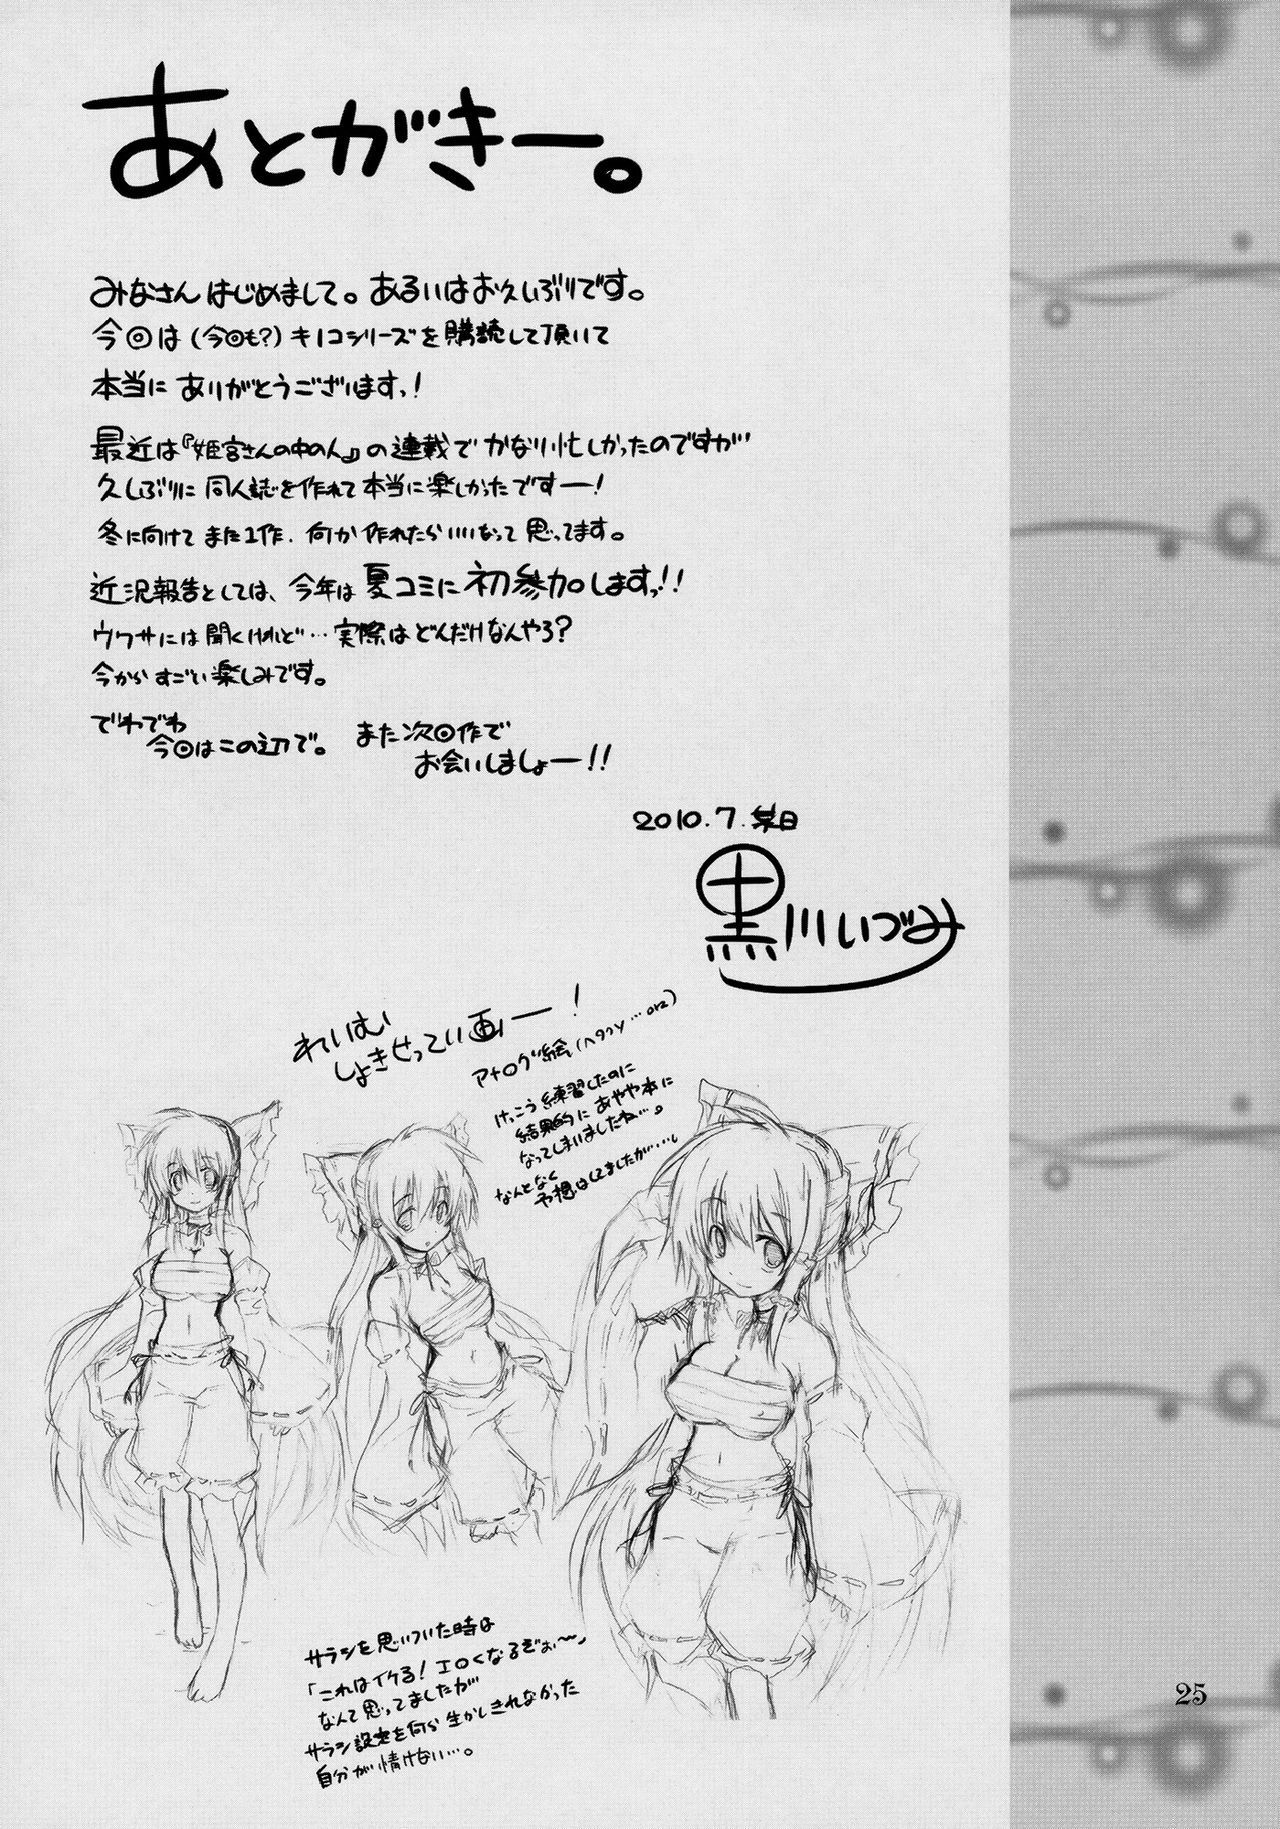 あとがきー。
みなさん はじめまして。あるいはお久しぶりです。
今回は(今回も?)キノコシリーズを購読して頂いて
本当に ありがとうございますっ!
最近は『姫宮さんの中の人』の連載で かなり忙しかったのですが…
久しぶりに 同人誌を作れて 本当に楽しかったですー!
冬に向けて また1作、何か作れたらいいなって 思ってます。
近況報告としては、今年は 夏コミに 初参加しますっ!!
ウワサには聞くけれど…実際はどんだけなんやろ?
今から すごい楽しみです。
でわでわ
今回はこの辺で。 また次回作で
お会いしましょー!!
2010.7.某日
黒川いづみ
れいむ
しょきせってい画ー!
アナログ絵(ヘタクソ…orz)
けっこう練習したのに
結果的に あやや本に
なってしまいましたね…。
なんとなく
予想はしてましたが……。
サラシを思いついた時は
「これはイケる!エロくなるぞぉ〜」
なんて思ってましたが
サラシ設定を何ら生かしきれなかった
自分が情けない…。
25